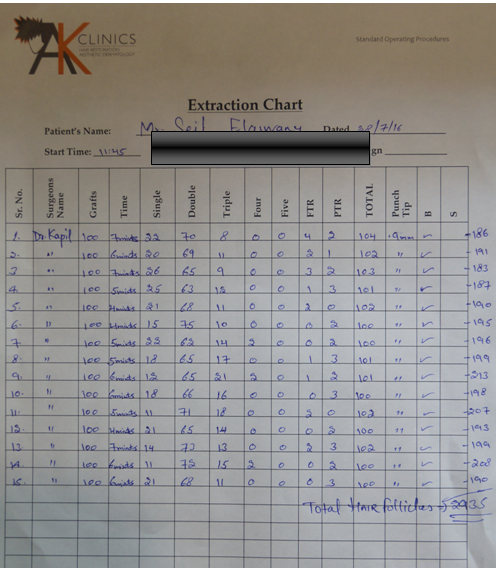 AK CLINICS
HAIR RESTORATION
AESTHETIC DERMATOLOGY
Standard Operating Procedures
Extraction Chart
Patient's Name: Mr Seif Elawany Dated 28/7/16
Start Time: 11:45 gn
Sr. No. Surgeons Name Grafts Time Single Double Triple Four Five FTR PTR TOTAL Punch Tip B S
1. Dr. Kapil 100 7mints 22 70 8 0 0 4 2 104 .9mm ✓ -186
2. " 100 6mints 20 69 11 0 0 2 1 102 " ✓ -191
3 " 100 7mints 26 65 9 0 0 3 2 103 " ✓ -183
4. " 100 5mints 25 63 12 0 0 1 3 101 " ✓ -187
5. " 100 4mints 21 68 11 0 0 2 0 102 " ✓ -190
6. " 100 4mints 15 75 10 0 0 0 2 100 " ✓ -195
7. " 100 5mints 22 62 14 2 0 0 2 100 " ✓ -196
8. " 100 5mints 18 65 17 0 0 1 3 101 " ✓ -199
9. " 100 6mints 12 65 21 2 0 1 2 101 " ✓ -213
10. " 100 6mints 18 66 16 0 0 0 3 100 " ✓ -198
11. " 100 5mints 11 71 18 0 0 2 0 102 " ✓ -207
12. " 100 4mints 21 65 14 0 0 0 2 100 " ✓ -193
13. " 100 7mints 14 73 13 0 0 2 3 102 " ✓ -199
14. " 100 6mints 11 72 15 2 0 0 2 100 " ✓ -208
15. " 100 6mints 21 68 11 0 0 0 3 100 " ✓ -190
Total HAIR follicles → 2935